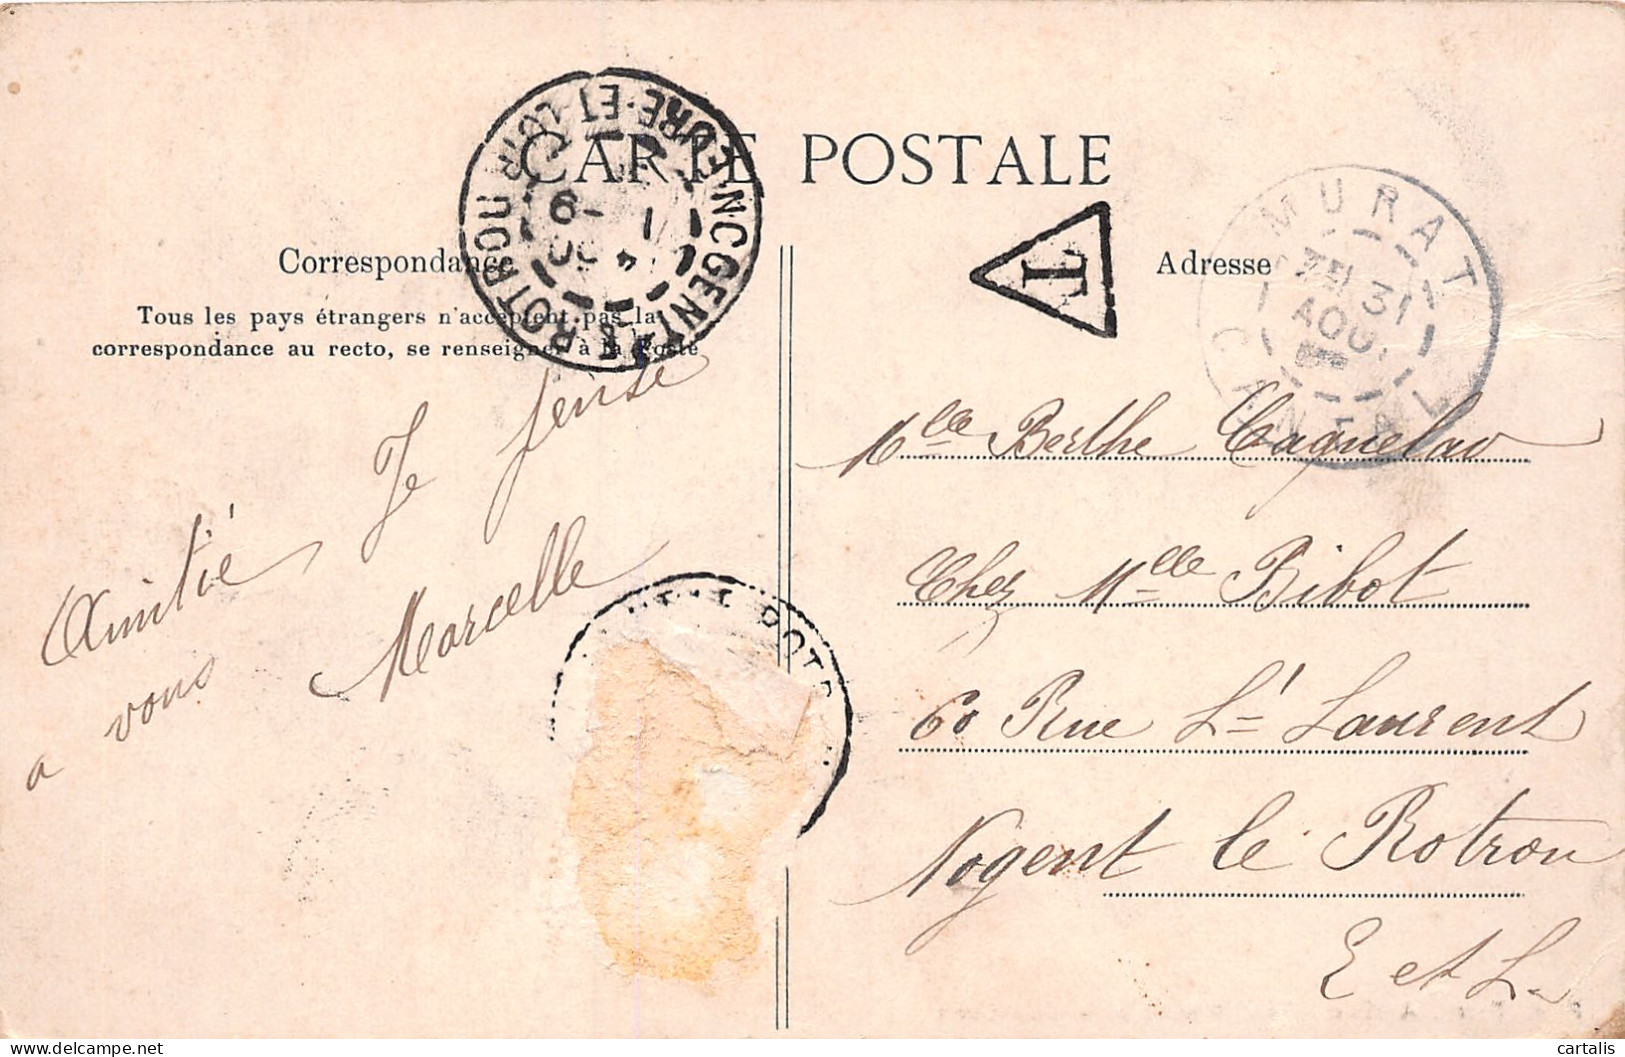 CARTE POSTALE
Correspondance
Tous les pays étrangers n'acceptent pas la
correspondance au recto, se renseigner à la Poste
NOGENT-LE-ROTROU
EURE-ET-LOIR
T
Adresse
MURAT
31
AOUT
CANTAL
Je pense
Amitié
a vous
Marcelle
Mlle Berthe
Chez Mlle Bibot
60 Rue St Laurent
Nogent le Rotrou
E et L
delcampe.net
cartalis